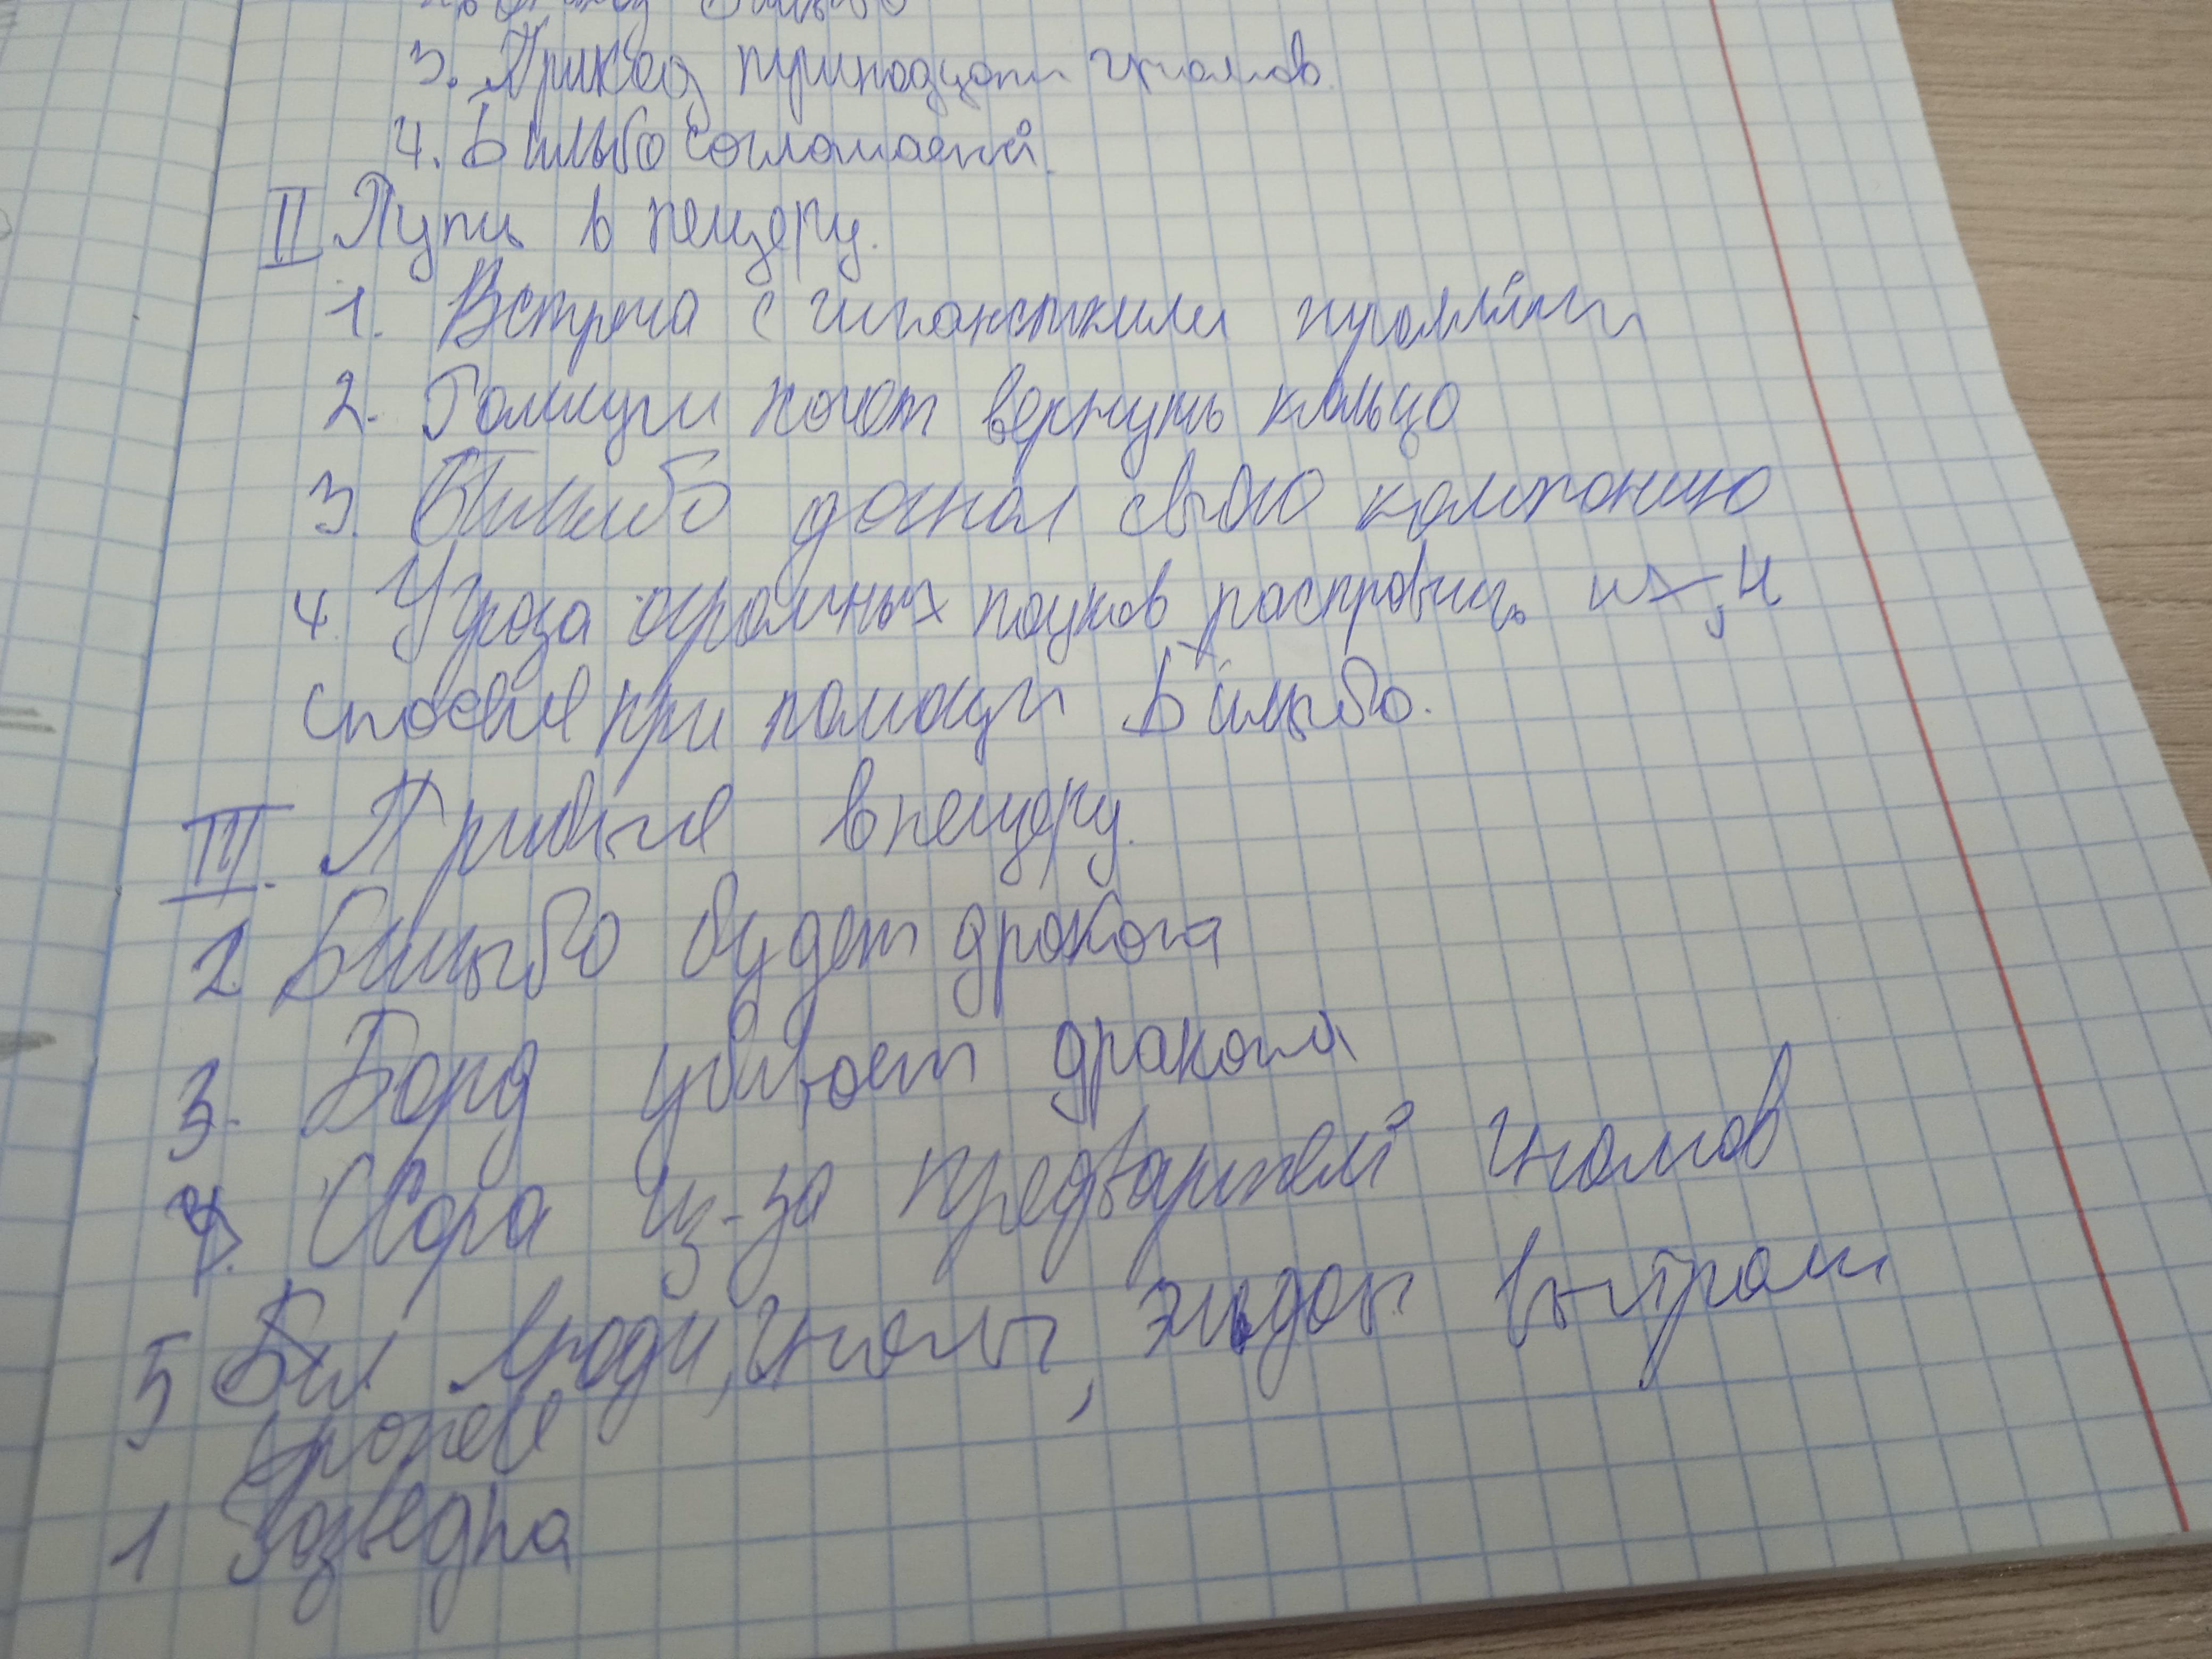 3. Приход тринадцати гномов.
4. Бильбо соглашается.
II Путь в пещеру.
1. Встреча с гигантскими троллями
2. Голлум хочет вернуть кольцо
3. Бильбо догнал свою компанию
4. Угроза огромных пауков расправиц их, и
спосение при помощи Бильбо.
III. Прибытие в пещеру.
2 Бильбо будет дракона
3. Бард убивает дракона
4. Ссора из-за гномов
5 Бел люди, гномы,
1 Разведка